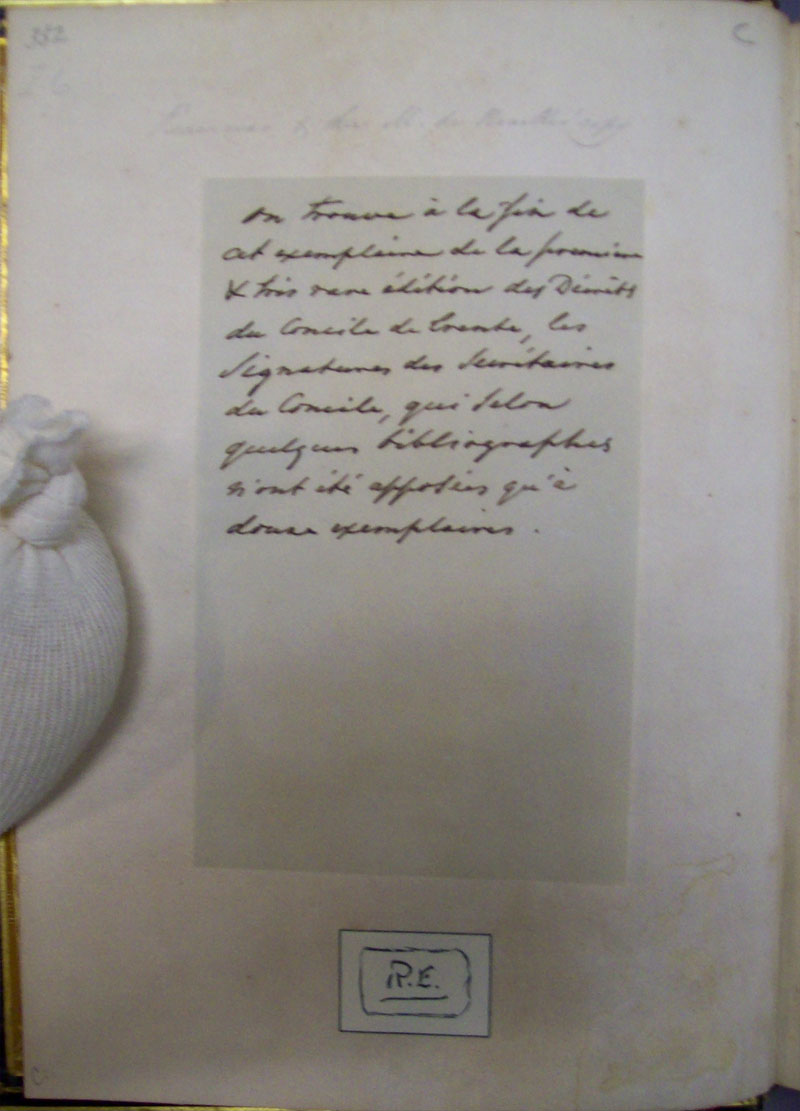 352
C
On trouve à la fin de
cet exemplaire de la première
& très rare édition des Décrets
du Concile de Trente, les
Signatures des Secrétaires
du Concile, qui selon
quelques bibliographes
n'ont été apposées qu'à
douze exemplaires.
R.E.
C